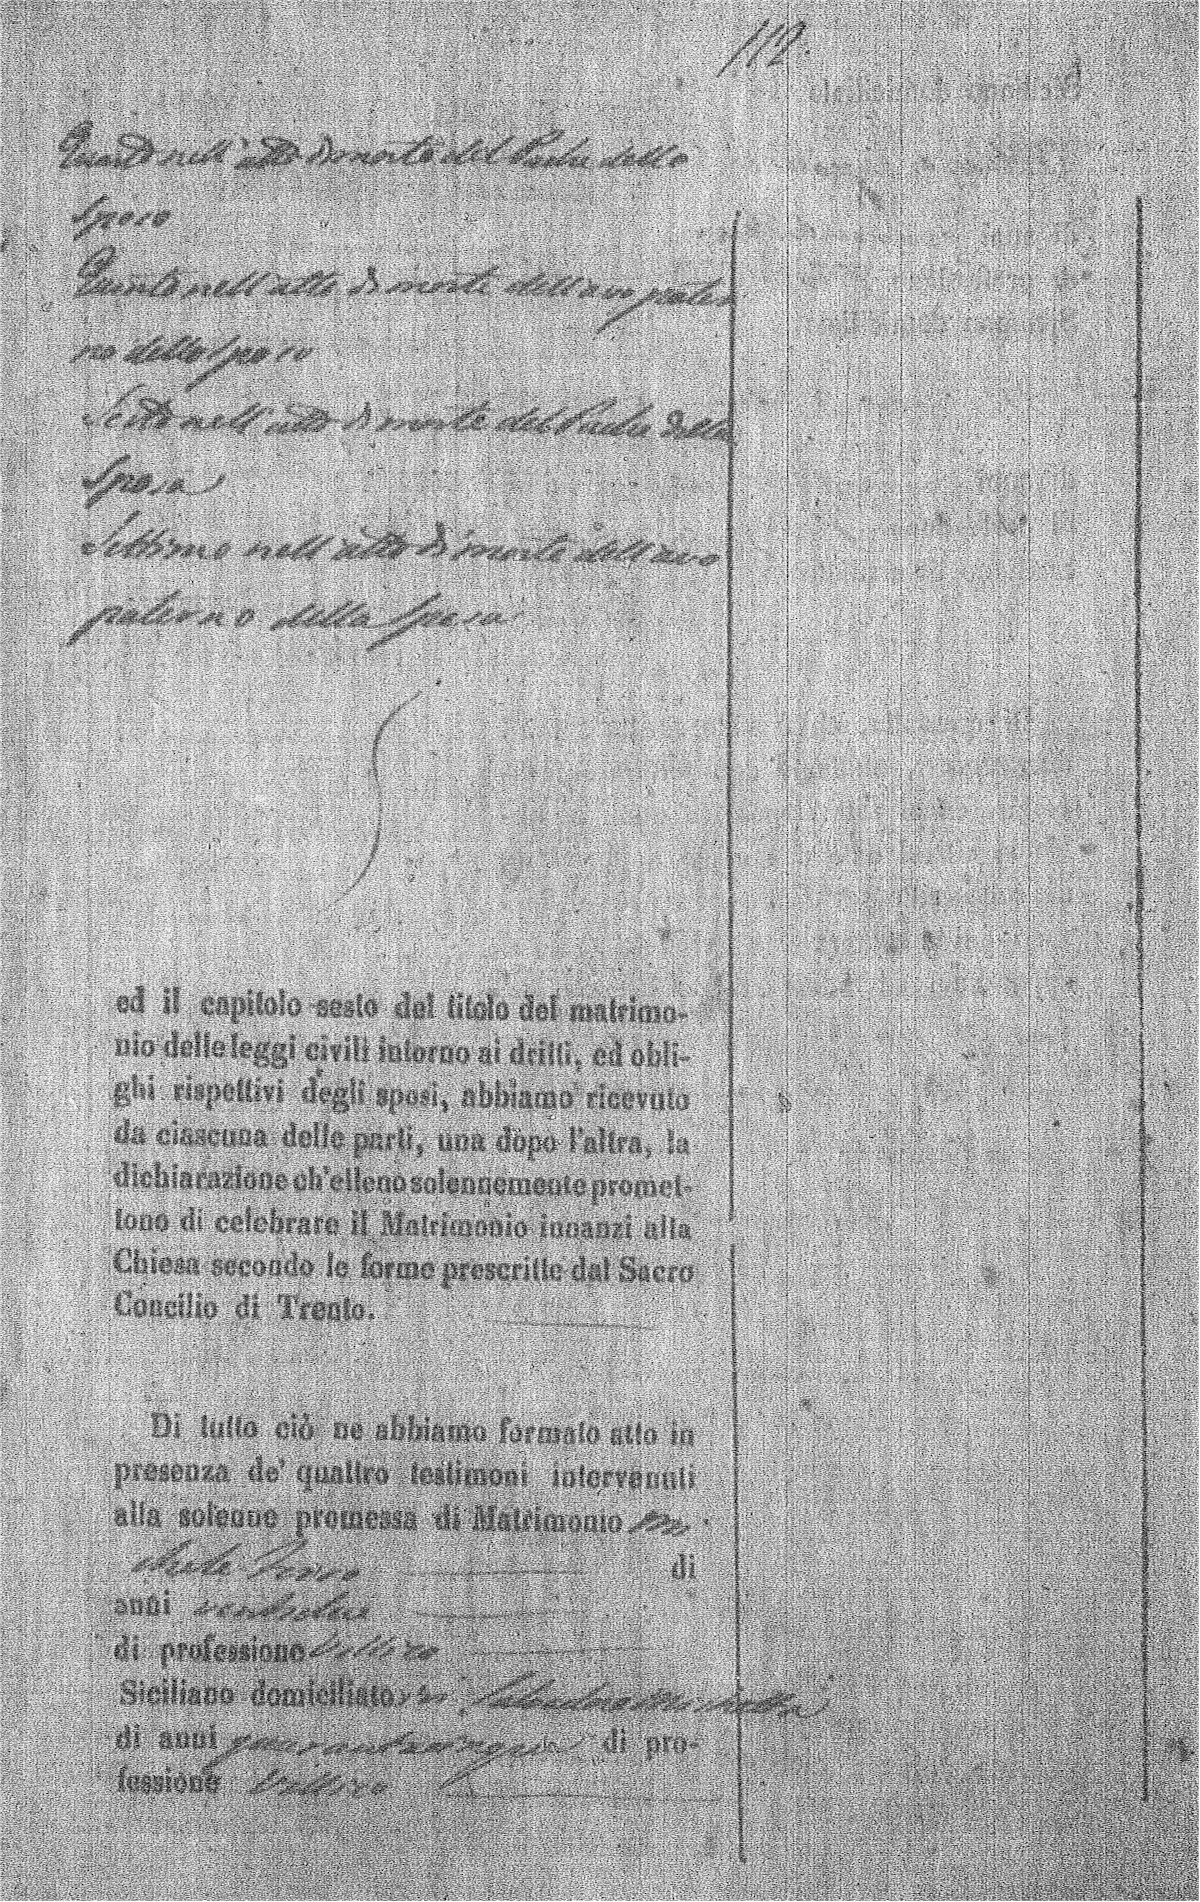 112.
Quarto nell'atto di morte del Padre dello
Sposo
Quinto nell'atto di morte dell'avo pater
no dello Sposo
Sesto nell'atto di morte del Padre della
Sposa
Settimo nell'atto di morte dell'avo
paterno della Sposa
ed il capitolo sesto del titolo del matrimo-
nio delle leggi civili intorno ai dritti, ed obli-
ghi rispettivi degli sposi, abbiamo ricevuto
da ciascuna delle parti, una dopo l'altra, la
dichiarazione ch'elleno solennemente promet-
tono di celebrare il Matrimonio innanzi alla
Chiesa secondo le forme prescritte dal Sacro
Concilio di Trento.
Di tutto ciò ne abbiamo formato atto in
presenza de' quattro testimoni intervenuti
alla solenne promessa di Matrimonio Mi
chele di
anni
di professione Villico
Siciliano domiciliato ivi
di anni quarantacinque di pro-
fessione Villico